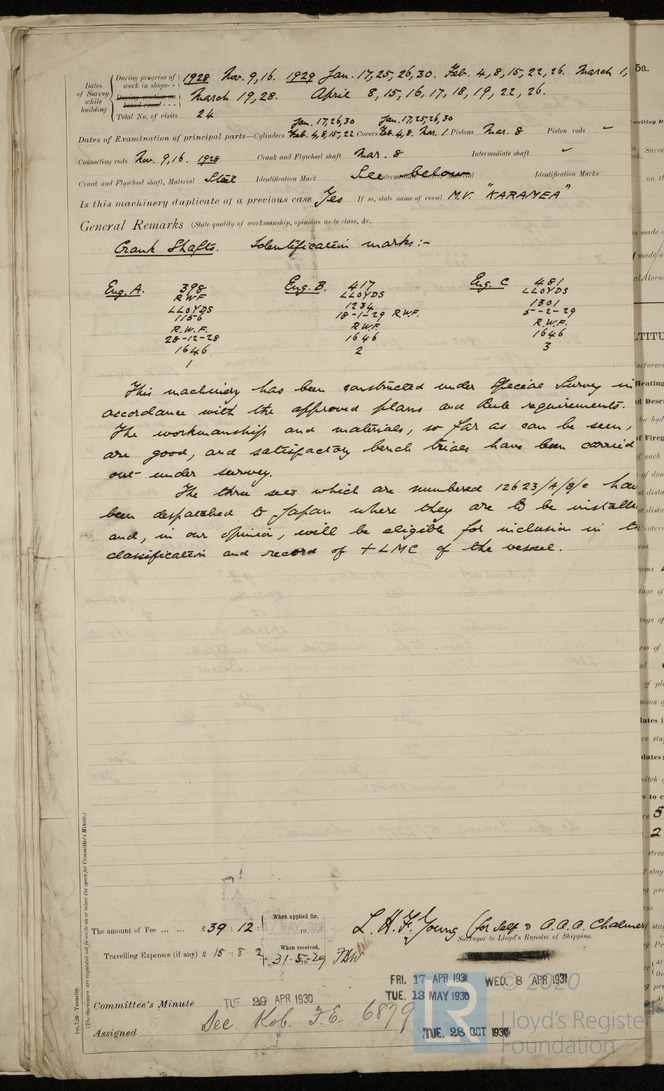 Dates of Survey while building
During progress of work in shops-- 1928 Nov. 9,16. 1929 Jan. 17,25,26,30. Feb. 4,8,15,22,26. March 1,
March 19,28. April 8,15,16,17,18,19,22,26.
Total No. of visits 24
Jan. 17,26,30 Jan. 17,25,26,30
Dates of Examination of principal parts—Cylinders Feb. 4,8,15,22 Covers Feb. 4,8. Mar. 1. Pistons Mar. 8 Piston rods ✓
Connecting rods Nov. 9,16. 1928 Crank and Flywheel shaft Mar. 8 Intermediate shaft ✓
Crank and Flywheel shaft, Material Steel Identification Mark See below Identification Marks
Is this machinery duplicate of a previous case Yes If so, state name of vessel M.V. "KARAMEA"
General Remarks (State quality of workmanship, opinions as to class, &c.
Crank Shafts. Identification marks:-
Eng. A. 398 Eng. B. 417 Eng. C 481
R.W.F LLOYDS LLOYDS
LLOYDS 1234 1301
1156 18-1-29 R.W.F. 5-2-29
R.W.F. R.W.F. R.W.F.
28-12-28 1646 1646
1646 2 3
1
This machinery has been constructed under Special Survey in
accordance with the approved plans and Rule requirements.
The workmanship and materials, so far as can be seen,
are good, and satisfactory bench trials have been carried
out under survey.
The three sets which are numbered 12623/A/B/C have
been despatched to Japan where they are to be installe
and, in our opinion, will be eligible for inclusion in
classification and record of +LMC of the vessel.
The amount of Fee ... ... £ 39 : 12 : When applied for,
Travelling Expenses (if any) £ 15 : 8 : 2 When received, 31.5.29
L. H. F. Young (for self & A.A.A. Chalmers
Surveyor to Lloyd's Register of Shipping.
FRI. 17 APR 1931 WED. 8 APR 1931
TUE. 13 MAY 1930
Committee's Minute TUE. 29 APR 1930
See Kob. F.E. 6879
Assigned TUE. 28 OCT 1930
(The Surveyors are requested not to write on or below the space for Committee's Minute.)
© 2020
Lloyd's Register
Foundation